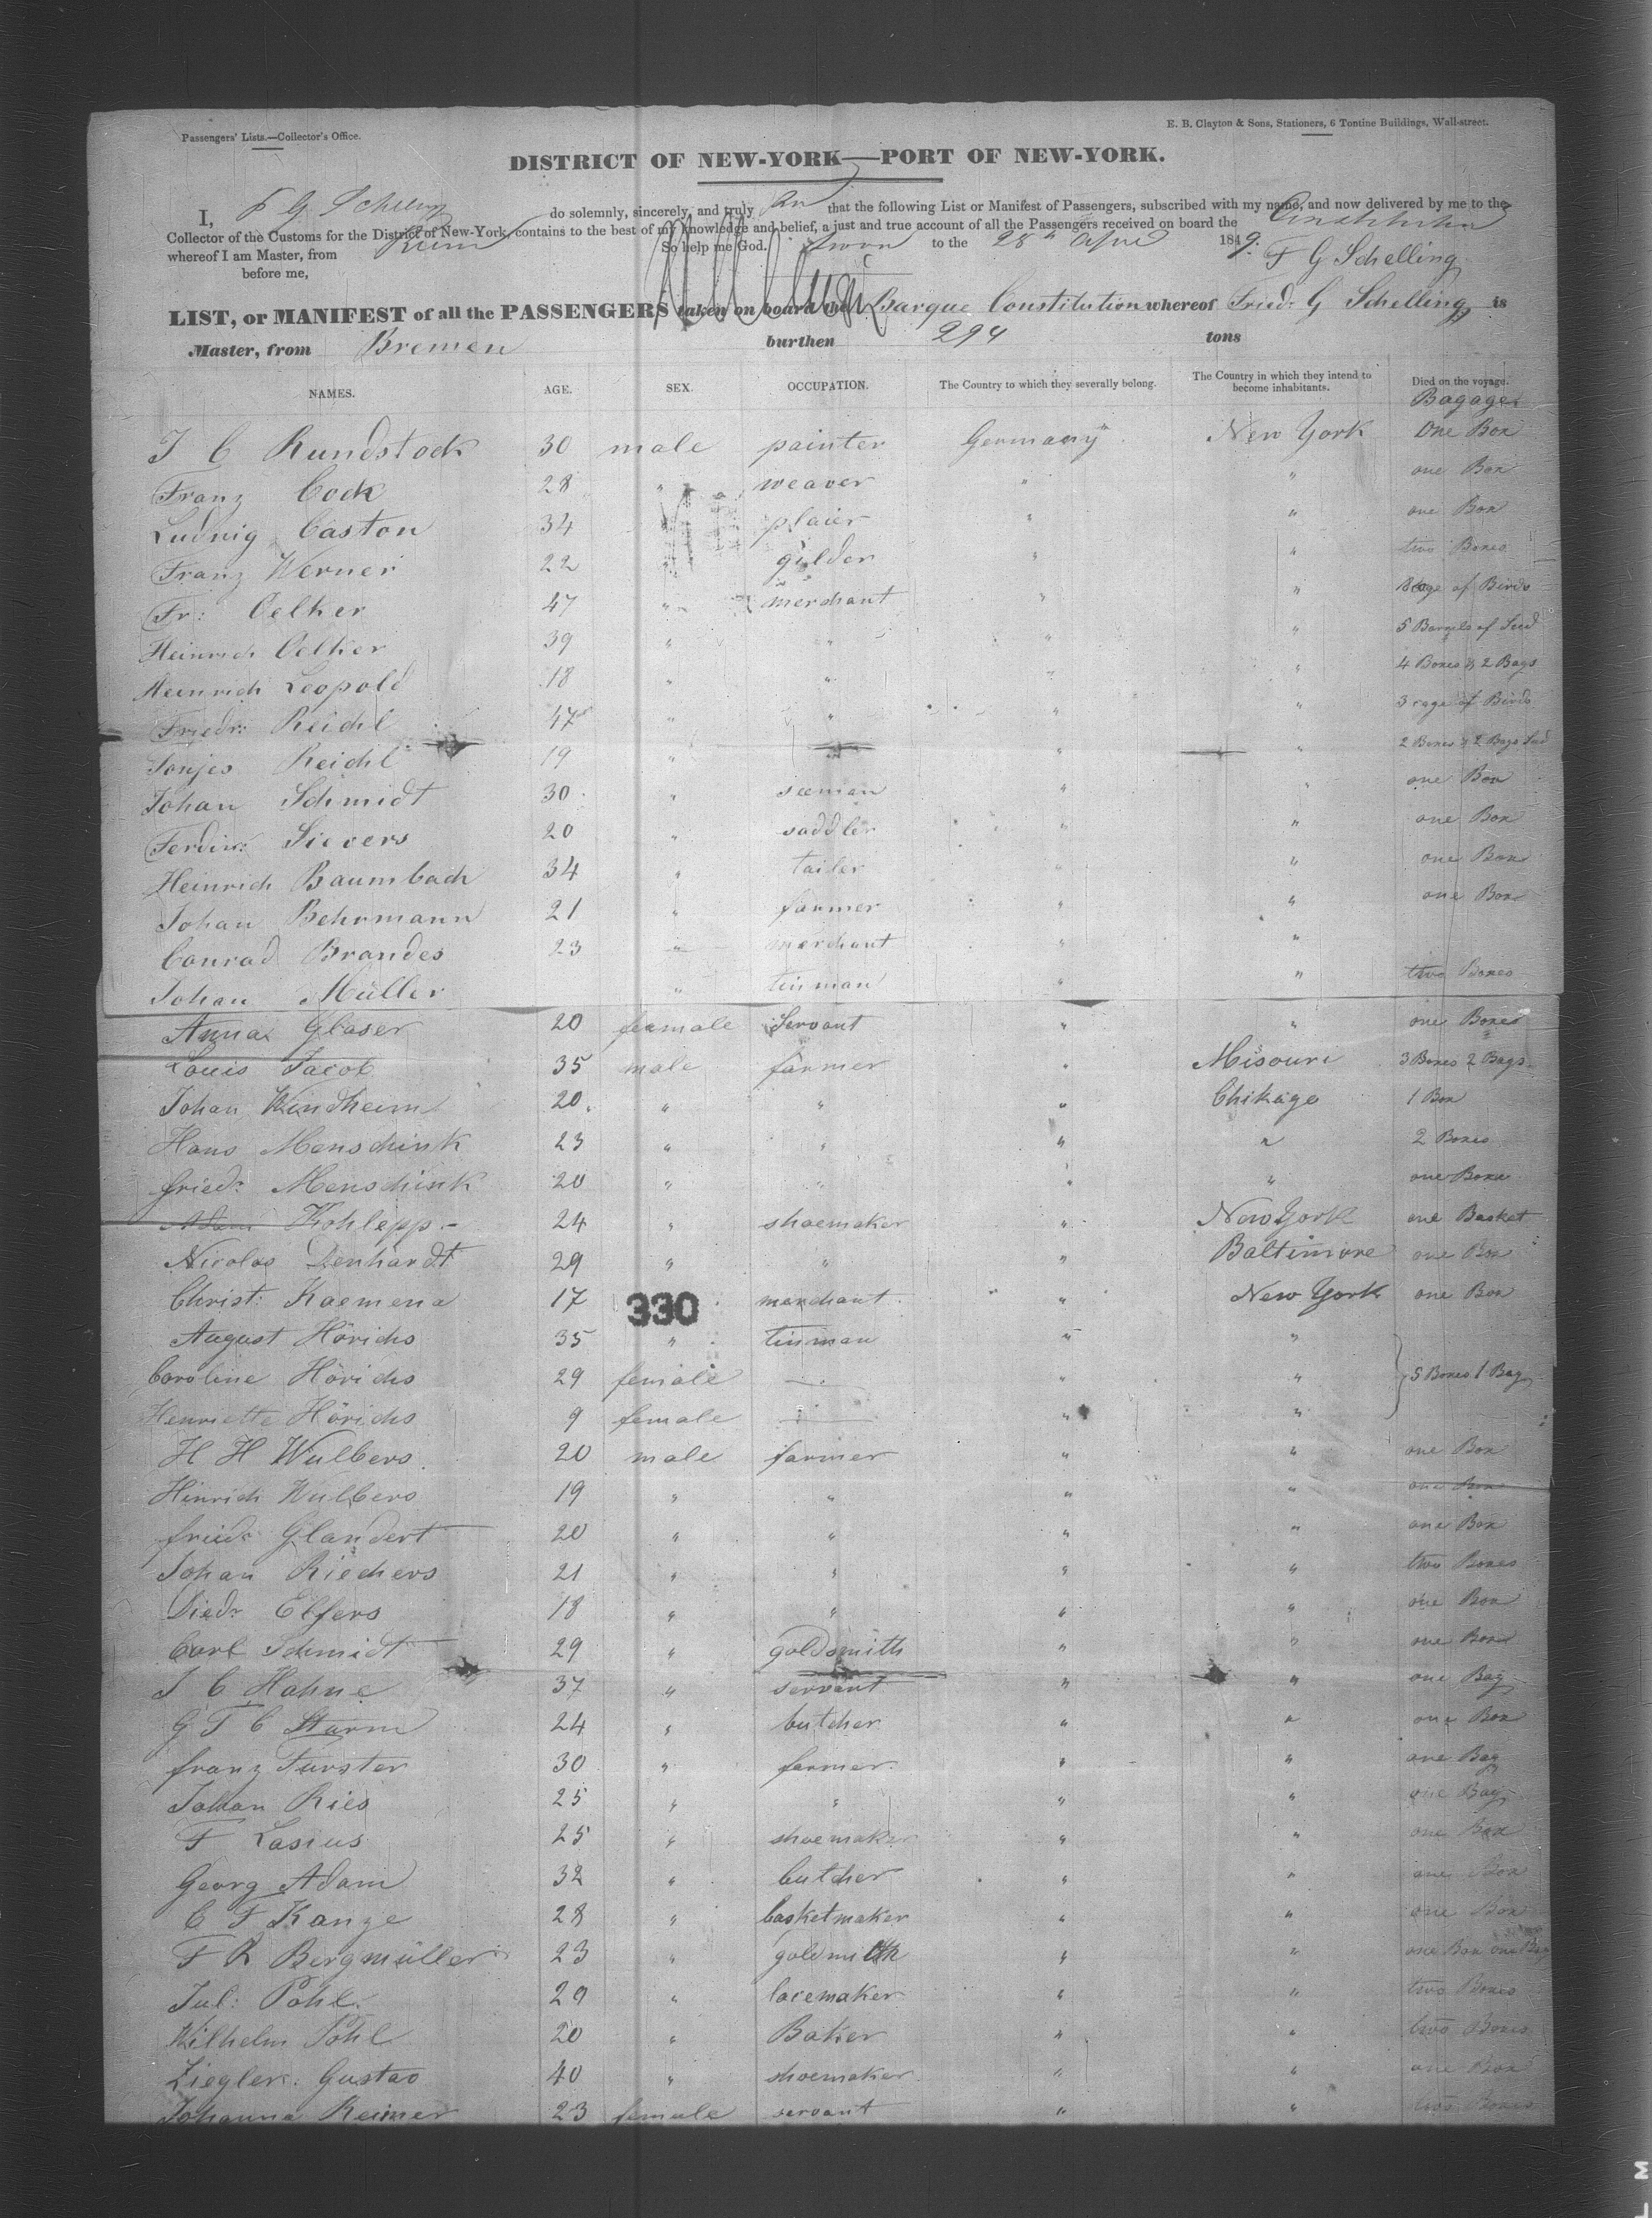 Passengers' Lists.—Collector's Office.
E. B. Clayton & Sons, Stationers, 6 Tontine Buildings, Wall-street.
DISTRICT OF NEW-YORK—PORT OF NEW-YORK.
I, F G Schelling do solemnly, sincerely, and truly that the following List or Manifest of Passengers, subscribed with my name, and now delivered by me to the
Collector of the Customs for the District of New-York, contains to the best of my knowledge and belief, a just and true account of all the Passengers received on board the Constitution
whereof I am Master, from Bremen So help me God. Sworn to the 28th April 1849.
before me, F G Schelling
LIST, or MANIFEST of all the PASSENGERS taken on board the Barque Constitution whereof Friedr. G Schelling is
Master, from Bremen burthen 294 tons
NAMES. AGE. SEX. OCCUPATION. The Country to which they severally belong. The Country in which they intend to become inhabitants. Died on the voyage.
Bagage
J C Rundstock 30 male painter Germany New York One Box
Franz Cock 28 " weaver " " one Box
Ludwig Caston 34 " plaier " " one Box
Franz Werner 22 " gilder " " two Boxes
Fr: Oelker 47 " merchant " " of Birds
Heinrich Oelker 39 " " " " 5 Barrels of Seed
Heinrich Leopold 18 " " " " 4 Boxes & 2 Bags
Friedr: Reichl 47 " " " " 3 cage of Birds
Tonjes Reichl 19 " " " 2 Boxes & 2 Bags Seed
Johan Schmidt 30 " seeman " " one Box
Ferdin: Sievers 20 " saddler " " one Box
Heinrich Baumbach 34 " tailer " " one Box
Johan Behrmann 21 " farmer " " one Box
Conrad Brandes 23 " merchant " "
Johan Müller " tinman " " two Boxes
Anna Glaser 20 female Servant " " one Boxes
Louis Jacob 35 male farmer " Misouri 3 Boxes 2 Bags
Johan Windheim 20 " " " Chikago 1 Box
Hans Menschink 23 " " " " 2 Boxes
Friedr: Menschink 20 " " " " one Boxe
Adam Kohlepp 24 " shoemaker " New York one Basket
Nicolas Denhardt 29 " " " Baltimore one Box
Christ: Kaemena 17 merchant " New York one Box
330
August Hörichs 35 " tinman " "
Caroline Hörichs 29 female — " " 5 Boxes 1 Bag
Henriette Hörichs 9 female — " "
H H Wulbers 20 male farmer " " one Box
Hinrich Wulbers 19 " " " " one Box
Friedr Glandert 20 " " " " one Box
Johan Riechers 21 " " " " two Boxes
Diedr Elfers 18 " " " " one Box
Carl Schmidt 29 " goldsmith " " one Box
J C Hahne 37 " servant " " one Bag
G F C Sturm 24 " butcher " " one Box
Franz Furster 30 " farmer " " one Bag
Johan Ries 25 " " " " one Bag
F Lasius 25 " shoemaker " " one Box
Georg Adam 32 " butcher " " one Box
C F Kange 28 " basketmaker " " one Box
F R Bergmüller 23 " goldmith " " one Box one Bag
Jul: Pohl 29 " lacemaker " " two Boxes
Wilhelm Pohl 20 " Baker " " two Boxes
Ziegler: Gustav 40 " shoemaker " " one Box
Johanna Reimer 23 female servant " " two Boxes